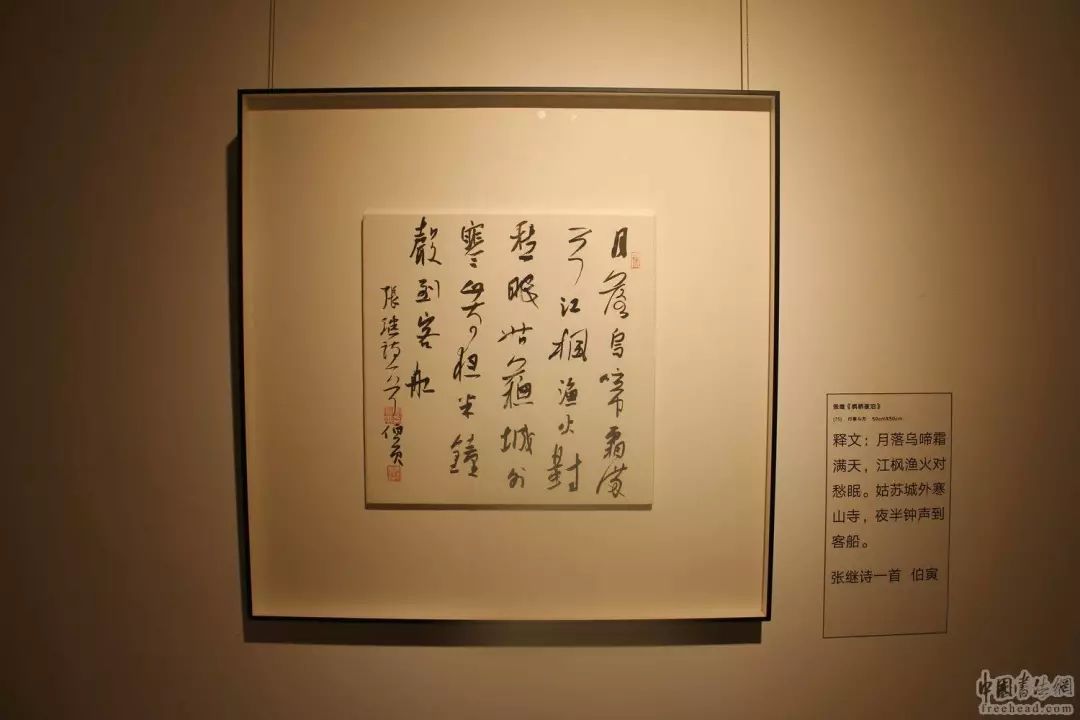 月落烏啼霜滿
天江楓漁火對
愁眠姑蘇城外
寒山寺夜半鐘
聲到客船
張継詩一首
伯寅
张继《枫桥夜泊》
50cmX50cm
释文：月落乌啼霜
满天，江枫渔火对
愁眠。姑苏城外寒
山寺，夜半钟声到
客船。
张继诗一首 伯寅
中国書法網
freehead.com